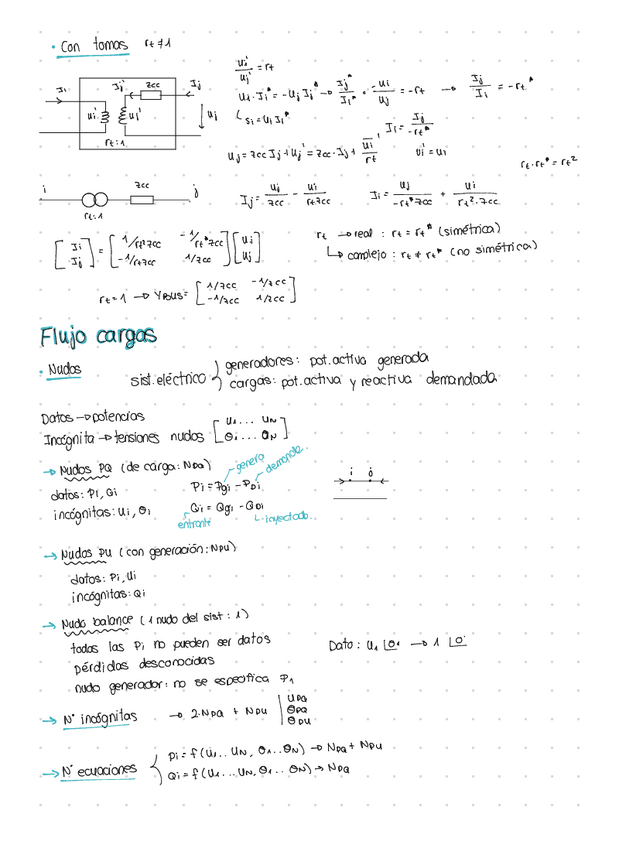 • Con tomas rt ≠ 1
Ii Ij' zcc Ij
ui' uj' uj
rt:1
ui'/uj' = rt
ui·Ii* = -uj Ij* → Ij*/Ii* = -ui/uj = -rt → Ij/Ii = -rt*
Si = ui Ii*
Ii = Ij/-rt*
uj = zcc Ij + uj' = zcc·Ij + ui/rt ui' = ui
rt·rt* = rt²
i zcc j
rt:1
Ij = uj/zcc - ui/rt zcc Ii = uj/-rt* zcc + ui/rt²·zcc
[Ii Ij] = [1/rt²zcc -1/rt*zcc
-1/rt zcc 1/zcc] [ui uj]
rt → real : rt = rt* (simétrica)
↳ complejo : rt ≠ rt* (no simétrica)
rt = 1 → YBUS = [1/zcc -1/zcc
-1/zcc 1/zcc]
Flujo cargas
• Nudos
sist. eléctrico { generadores: pot. activa generada
cargas: pot. activa y reactiva demandada
Datos → potencias
Incógnita → tensiones nudos [u1 ... uN
θ1 ... θN]
→ Nudos PQ (de carga: NPQ)
genera demanda
datos: Pi, Qi Pi = Pgi - PDi
i j
incógnitas: ui, θi Qi = Qgi - QDi
entrante inyectado
→ Nudos PU (con generación: NPU)
datos: Pi, ui
incógnitas: Qi
→ Nudo balance (1 nudo del sist: 1)
todas las Pi no pueden ser datos Dato: u1 |θ1 → 1 |0°
pérdidas desconocidas
nudo generador: no se especifica P1
→ N° incógnitas → 2·NPQ + NPU | UPQ
θPQ
θPU
→ N° ecuaciones { Pi = f(u1 ... uN, θ1 ... θN) → NPQ + NPU
Qi = f(u1 ... uN, θ1 ... θN) → NPQ